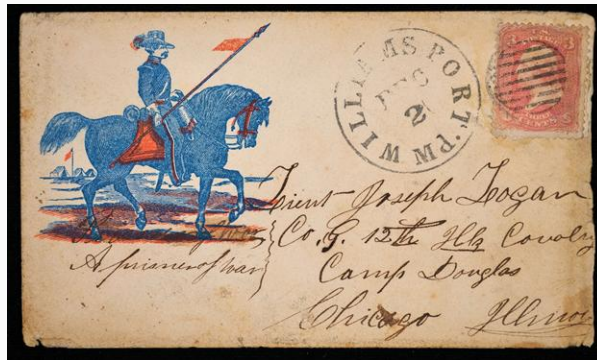 WILLIAMSPORT. Md
DEC
2
3 3
CENTS
Lieut Joseph Logan
Co. G. 12th Ills Cavalry
Camp Douglas
Chicago Illinois
A prisoner of war